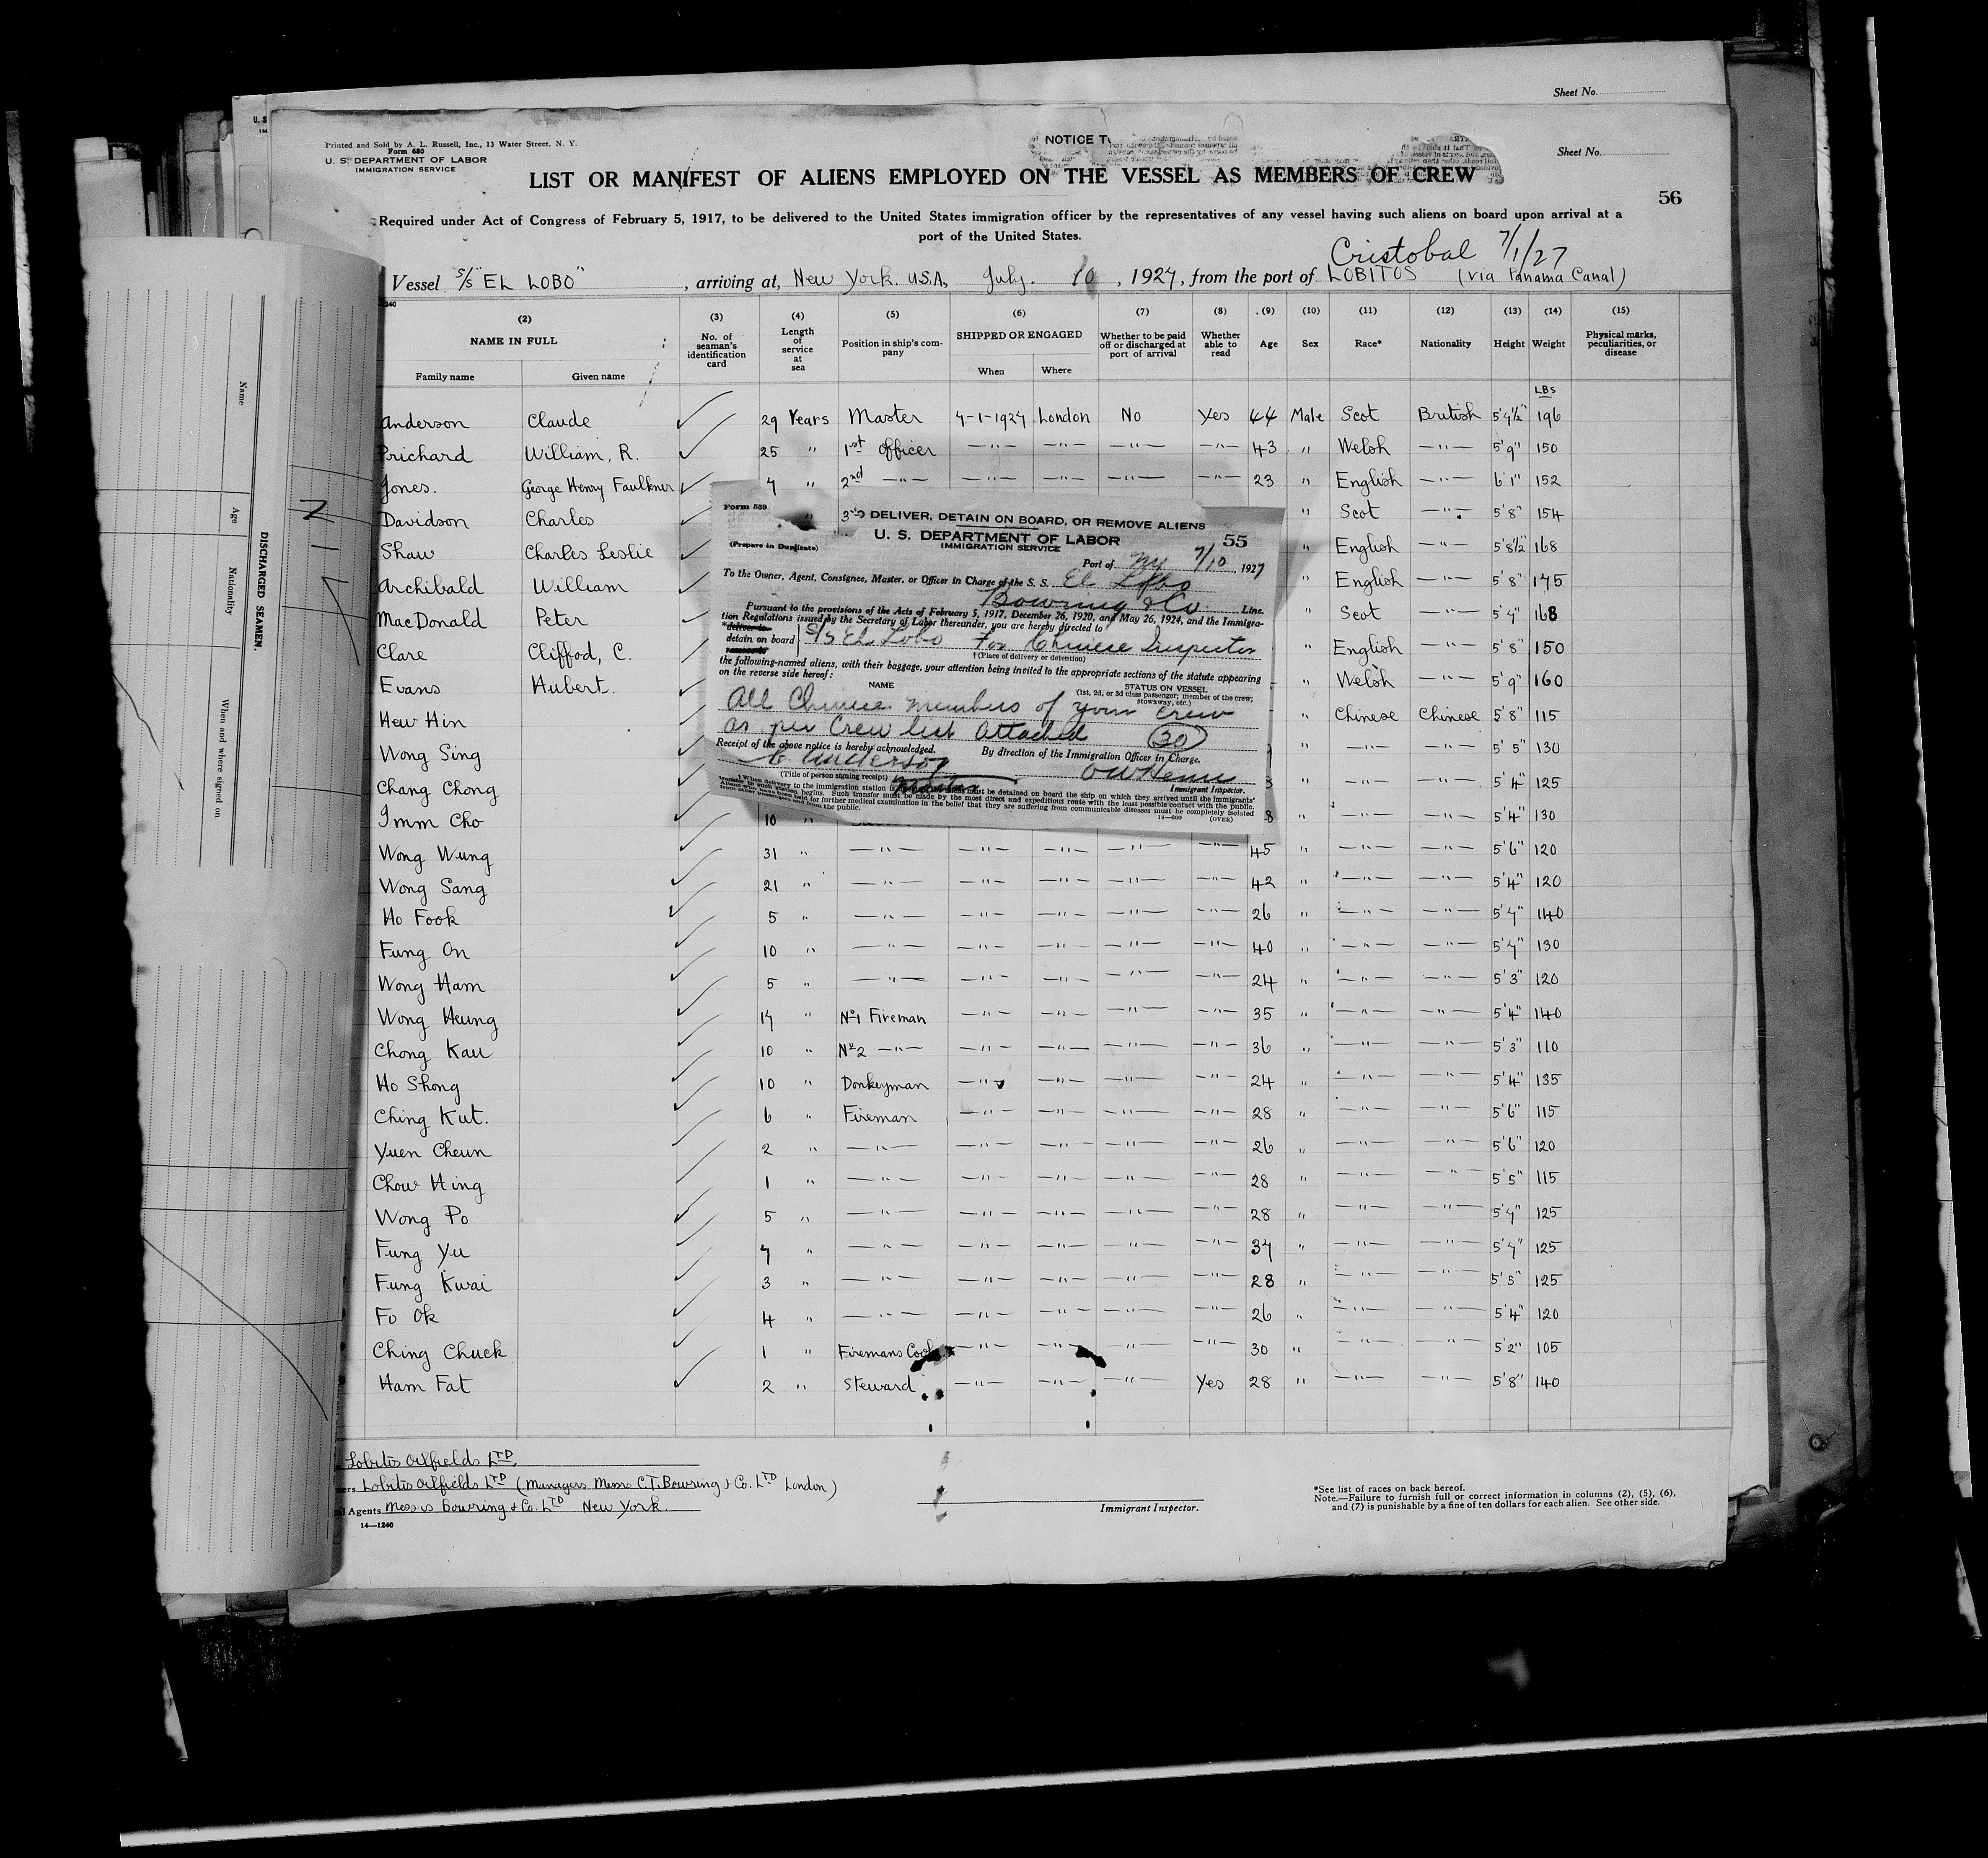 Sheet No.
U. S
IM
Printed and Sold by A. L. Russell, Inc., 13 Water Street, N. Y.
Form 680
U. S. DEPARTMENT OF LABOR
IMMIGRATION SERVICE
NOTICE T
Sheet No.
LIST OR MANIFEST OF ALIENS EMPLOYED ON THE VESSEL AS MEMBERS OF CREW
56
Required under Act of Congress of February 5, 1917, to be delivered to the United States immigration officer by the representatives of any vessel having such aliens on board upon arrival at a
port of the United States.
Cristobal 7/1/27
Vessel S/S "EL LOBO", arriving at, New York. U.S.A, July. 10, 1927, from the port of LOBITOS (via Panama Canal)
240
(2) (3) (4) (5) (6) (7) (8) (9) (10) (11) (12) (13) (14) (15)
NAME IN FULL No. of seaman's identification card Length of service at sea Position in ship's company SHIPPED OR ENGAGED Whether to be paid off or discharged at port of arrival Whether able to read Age Sex Race* Nationality Height Weight Physical marks, peculiarities, or disease
Family name Given name When Where
LBs
Anderson Claude 29 Years Master 7-1-1927 London No Yes 44 Male Scot British 5'7½" 196
Prichard William, R. 25 " 1st Officer —"— —"— —"— —"— 43 " Welsh —"— 5'9" 150
Jones. George Henry Faulkner 7 " 2nd —"— —"— —"— —"— —"— 23 " English —"— 6'1" 152
Davidson Charles " 3rd " Scot —"— 5'8" 154
Shaw Charles Leslie " English —"— 5'8½" 168
Archibald William " English —"— 5'8" 175
MacDonald Peter " Scot —"— 5'7" 168
Clare Cliffod, C. " English —"— 5'8" 150
Evans Hubert. " Welsh —"— 5'9" 160
Hew Hin " Chinese Chinese 5'8" 115
Wong Sing " —"— —"— 5'5" 130
Chang Chong " —"— —"— 5'4" 125
Imm Cho 10 " 8 " —"— —"— 5'4" 130
Wong Wung 31 " —"— —"— —"— —"— —"— 45 " —"— —"— 5'6" 120
Wong Sang 21 " —"— —"— —"— —"— —"— 42 " —"— —"— 5'4" 120
Ho Fook 5 " —"— —"— —"— —"— —"— 26 " —"— —"— 5'7" 140
Fung On 10 " —"— —"— —"— —"— —"— 40 " —"— —"— 5'7" 130
Wong Ham 5 " —"— —"— —"— —"— —"— 24 " —"— —"— 5'3" 120
Wong Heung 17 " No1 Fireman —"— —"— —"— —"— 35 " —"— —"— 5'4" 140
Chong Kau 10 " No2 —"— —"— —"— —"— —"— 36 " —"— —"— 5'3" 110
Ho Shong 10 " Donkeyman —"— —"— —"— —"— 24 " —"— —"— 5'4" 135
Ching Kut. 6 " Fireman —"— —"— —"— —"— 28 " —"— —"— 5'6" 115
Yuen Cheun 2 " —"— —"— —"— —"— —"— 26 " —"— —"— 5'6" 120
Chow Hing 1 " —"— —"— —"— —"— —"— 28 " —"— —"— 5'5" 115
Wong Po 5 " —"— —"— —"— —"— —"— 28 " —"— —"— 5'7" 125
Fung Yu 7 " —"— —"— —"— —"— —"— 37 " —"— —"— 5'7" 125
Fung Kwai 3 " —"— —"— —"— —"— —"— 28 " —"— —"— 5'5" 125
Fo Ok 4 " —"— —"— —"— —"— —"— 26 " —"— —"— 5'4" 120
Ching Chuck 1 " Firemans Cook —"— —"— —"— —"— 30 " —"— —"— 5'2" 105
Ham Fat 2 " Steward —"— —"— —"— Yes 28 " —"— —"— 5'8" 140
Form 559
TO DELIVER, DETAIN ON BOARD, OR REMOVE ALIENS
(Prepare in Duplicate)
U. S. DEPARTMENT OF LABOR
IMMIGRATION SERVICE
55
Port of NY 7/10, 1927
To the Owner, Agent, Consignee, Master, or Officer in Charge of the S. S. El Lobo
Bowring & Co Line.
Pursuant to the provisions of the Acts of February 5, 1917, December 26, 1920, and May 26, 1924, and the Immigra-
tion Regulations issued by the Secretary of Labor thereunder, you are hereby directed to
*deliver to
detain on board S/S El Lobo for Chinese Inspector
remove to
† (Place of delivery or detention)
the following-named aliens, with their baggage, your attention being invited to the appropriate sections of the statute appearing
on the reverse side hereof:
NAME
STATUS ON VESSEL
(1st, 2d, or 3d class passenger; member of the crew;
stowaway, etc.)
All Chinese members of your crew
as per Crew list attached (30)
Receipt of the above notice is hereby acknowledged.
By direction of the Immigration Officer in Charge.
C. Anderson
(Title of person signing receipt)
Master
Immigrant Inspector.
must be detained on board the ship on which they arrived until the immigrants'
transfer to such station begins. Such transfer must be made by the most direct and expeditious route with the least possible contact with the public.
for further medical examination in the belief that they are suffering from communicable diseases must be completely isolated
from other passengers and from the public.
14—660 (OVER)
Lobitos Oilfields LTD.
ners Lobitos Oilfields LTD (Managers Messrs C.T. Bowring & Co. LTD London)
al Agents Messrs Bowring & Co. LTD New York.
14—1240
Immigrant Inspector.
*See list of races on back hereof.
Note.—Failure to furnish full or correct information in columns (2), (5), (6),
and (7) is punishable by a fine of ten dollars for each alien. See other side.
DISCHARGED SEAMEN.
Name
Age
Nationality
When and where signed on